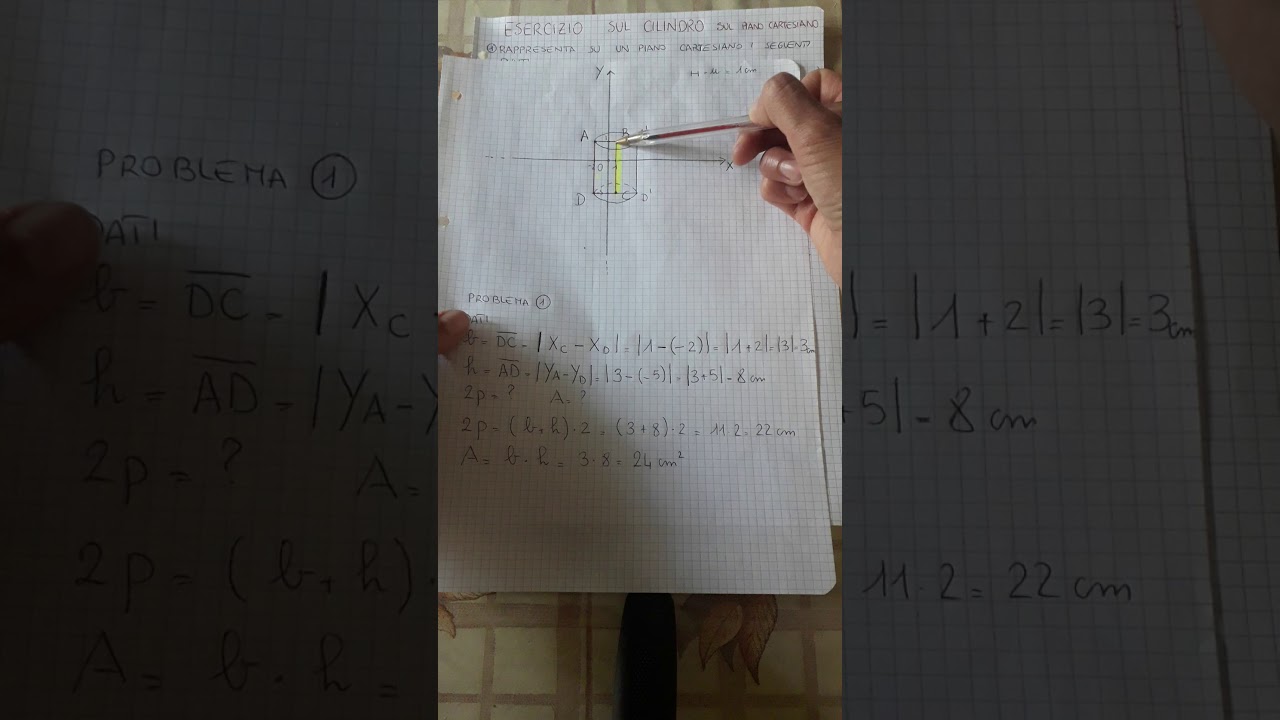 ESERCIZIO SUL CILINDRO SUL PIANO CARTESIANO
① RAPPRESENTA SU UN PIANO CARTESIANO I SEGUENTI
Y
H·u = 1cm
A B
O
X
D C D'
PROBLEMA ①
DATI
b = DC = |XC - XD| = |1-(-2)| = |1+2| = |3| = 3cm
h = AD = |YA - YD| = |3-(-5)| = |3+5| = 8 cm
2p = ? A = ?
2p = (b+h)·2 = (3+8)·2 = 11·2 = 22 cm
A = b·h = 3·8 = 24 cm²
PROBLEMA ①
ATI
b = DC = |XC
|= |1+2| = |3| = 3cm
h = AD = |YA - Y
+5| = 8 cm
2p = ? A =
2p = (b+h)·
11·2 = 22 cm
A = b·h =